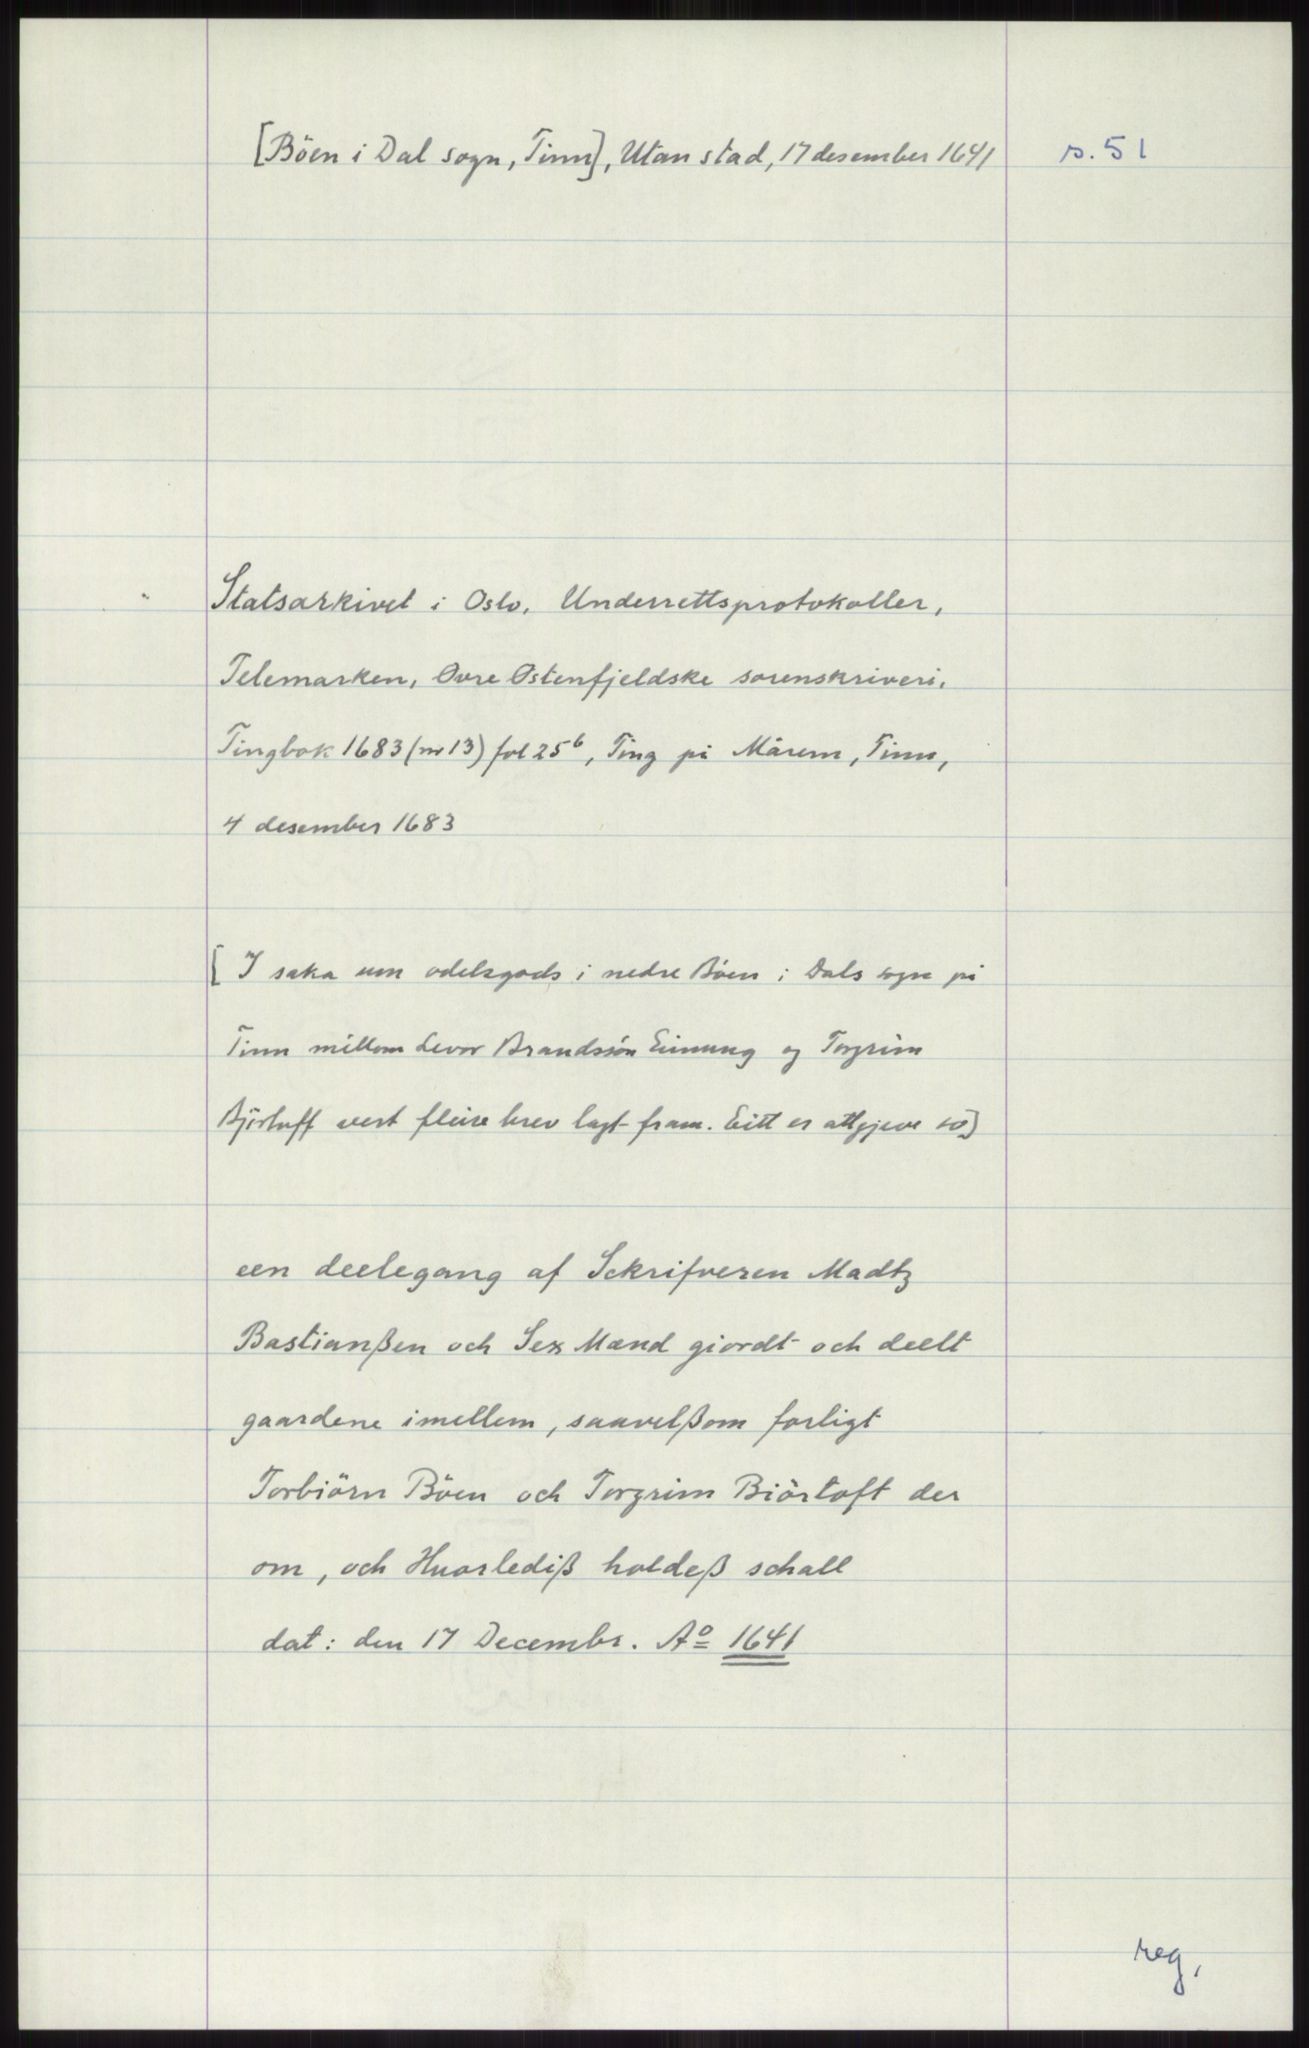 [Böen i Dal sogn, Tinn], Utan stad, 17 desember 1641
s. 51
Statsarkivet i Oslo. Underrettsprotokoller,
Telemarken, Øvre Østenfjeldske sorenskriveri.
Tingbok 1683 (nr 13) fol 25b, Ting på Mårem, Tinn,
4 desember 1683
[I saka um odelsgods i nedre Böen i Dals sogn på
Tinn millom Levor Brandssön Einung og Torgrim
Björtuft vert fleire brev lagt fram. Eitt er attgjeve so]
een deelegang af Sckrifveren Madtz
Bastianßen och Sex Mænd giordt och deelt
gaardene imellem, saavelßom forligt
Torbiörn Böen och Torgrim Biörtoft der
om, och Huorlediß holdeß schall
dat: den 17 Decembr. Aº 1641
reg.